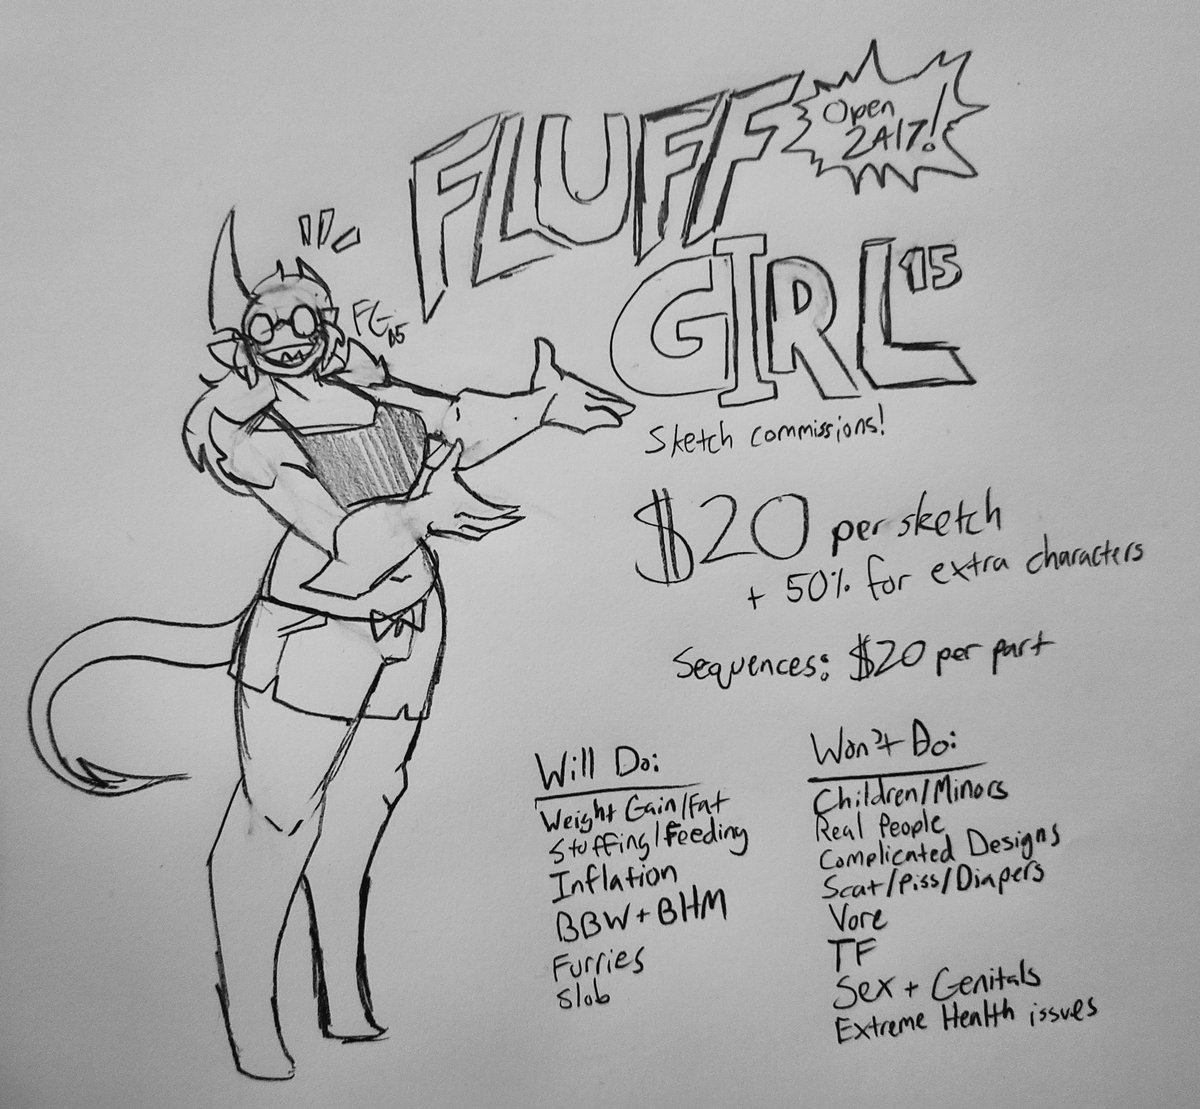 FLUFF
GIRL 15
Open
24/7!
FG15
Sketch commissions!
$20 per sketch
+ 50% for extra characters
Sequences: $20 per part
Will Do:
Weight Gain/Fat
Stuffing/Feeding
Inflation
BBW + BHM
Furries
Slob
Won't Do:
Children/Minors
Real People
Complicated Designs
Scat/Piss/Diapers
Vore
TF
Sex + Genitals
Extreme Health issues